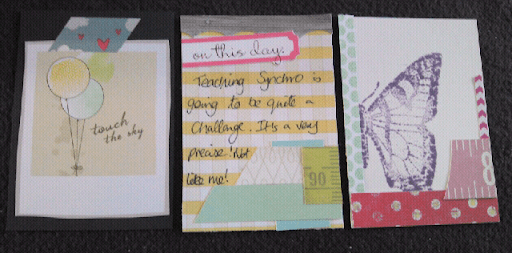 touch
the sky
on this day.
Teaching Synchro is
going to be quite a
Challenge. It's a very
precise! Not
like me!
90
8